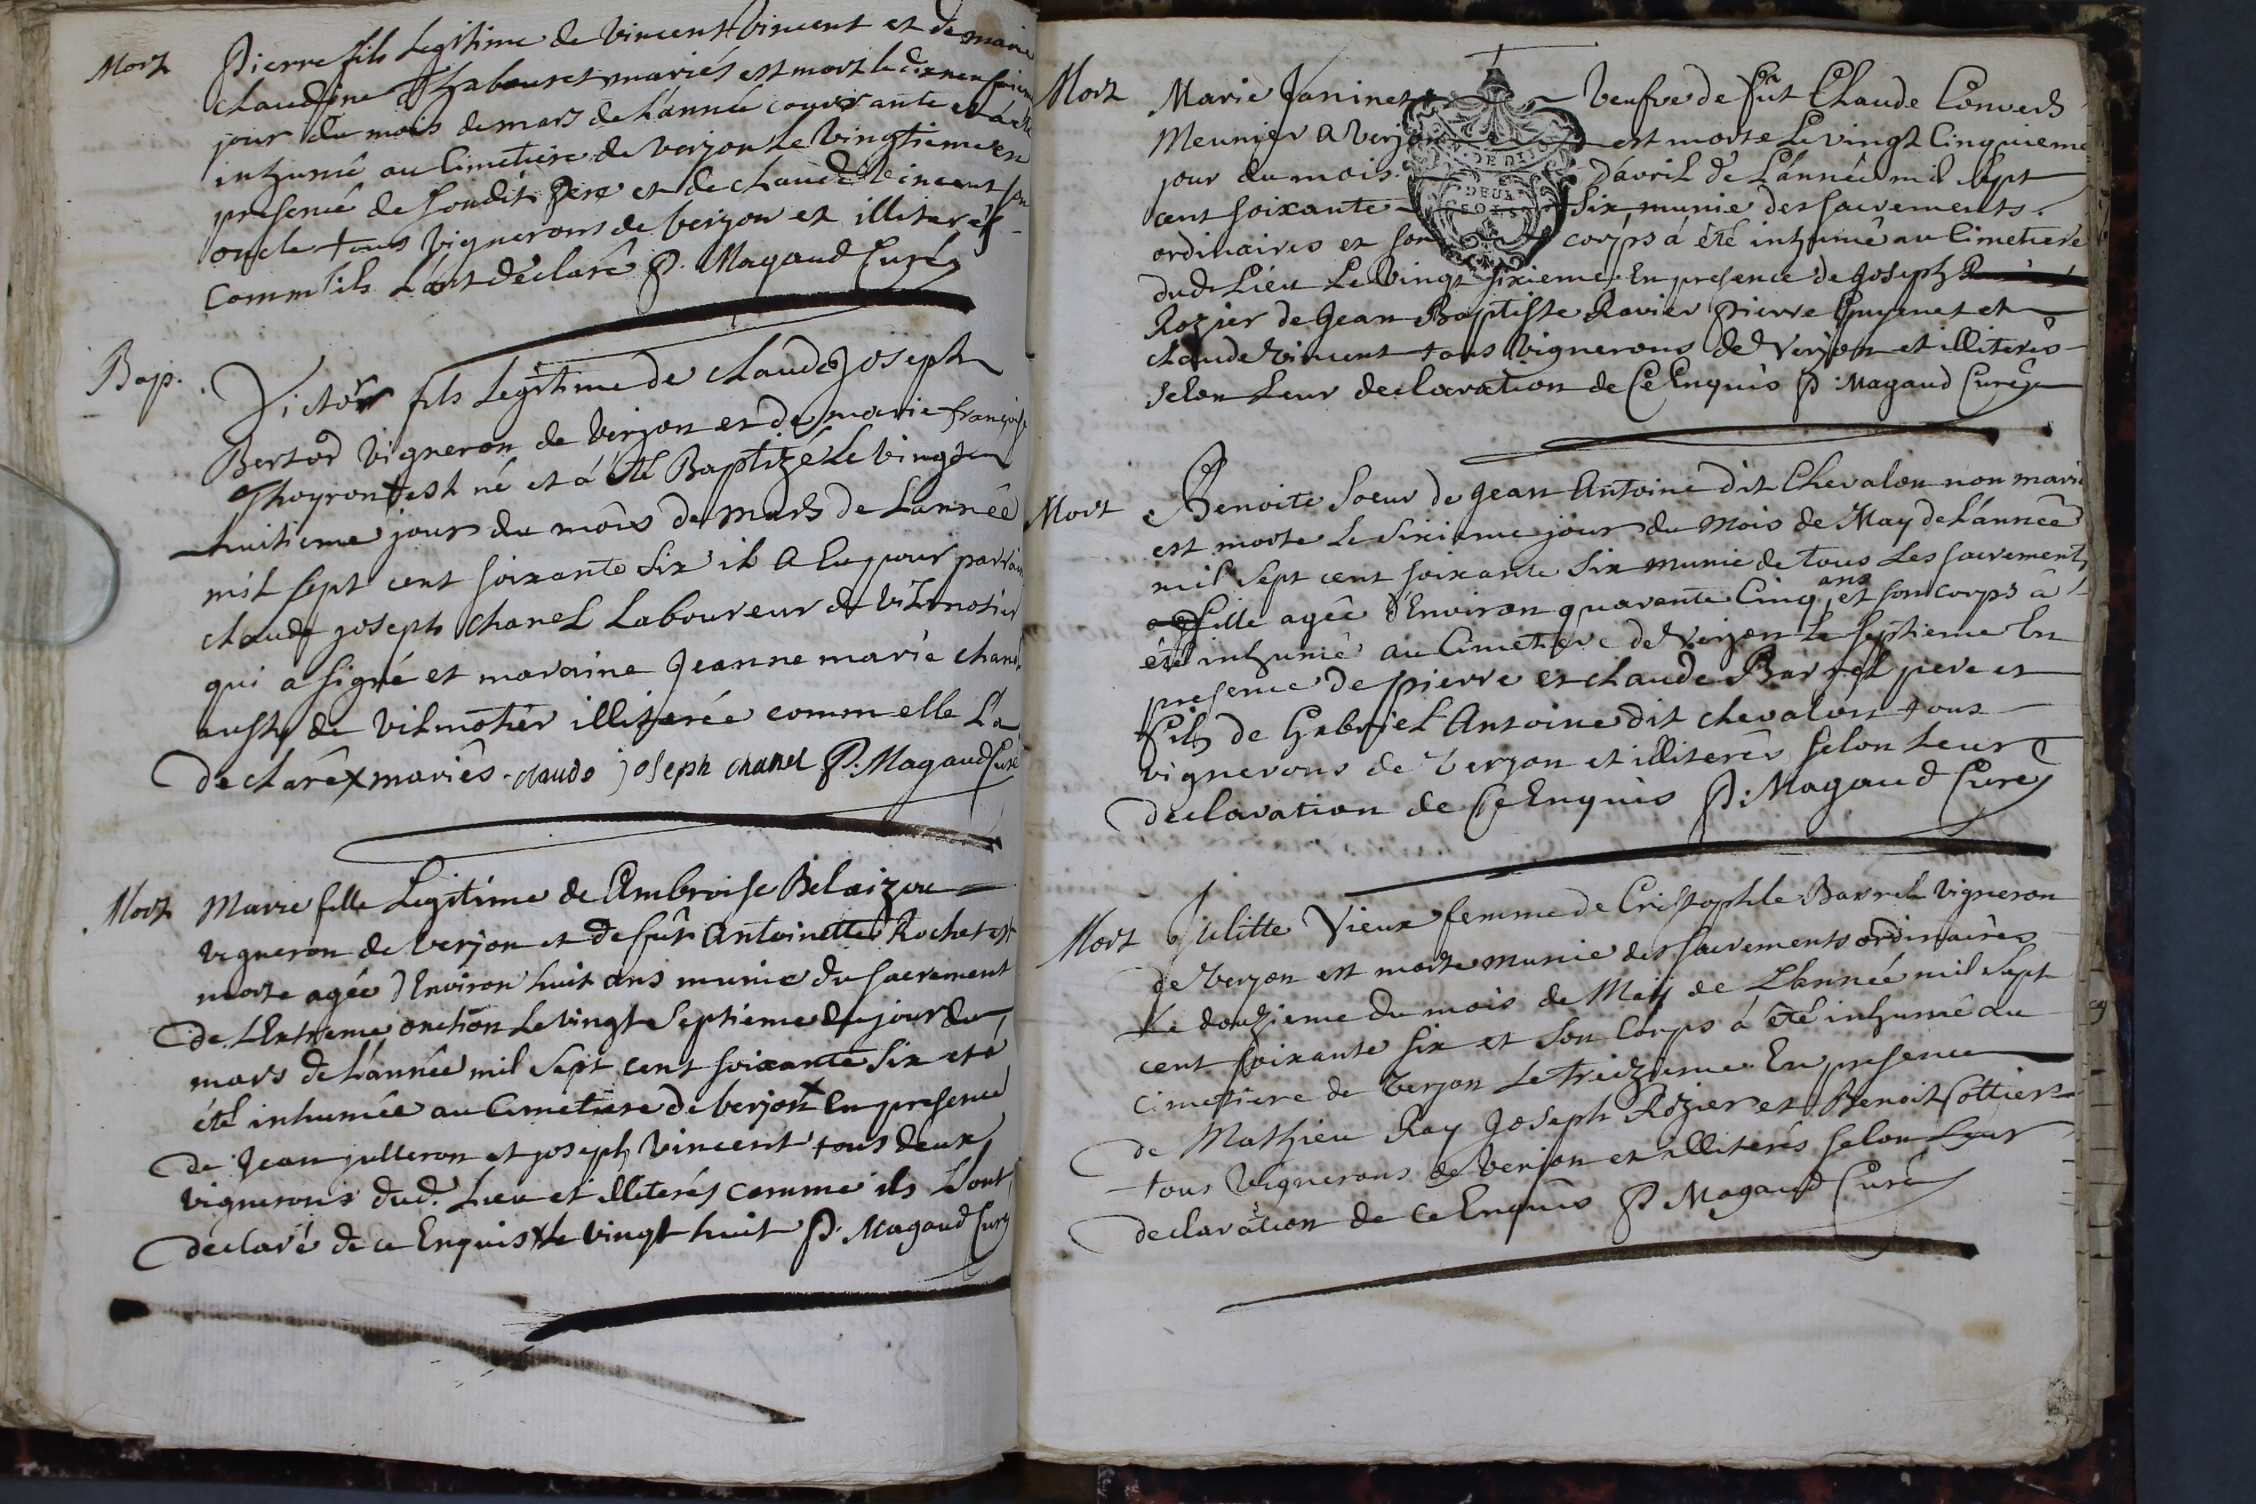 Mort
Pierre fils Legitime de vincent vincent et de marie
claudine Thabouret mariés est mort le dixneufvieme
jour du mois de mars de L'année courrante et a été
inhumé au Cimetiere de verjon Le vingtieme en
presence de sondit Pere et de claude vincent son
oncle tous vignerons de verjon et illiterés
comm'ils L'ont déclaré P. Magaud Curé
Bap.
Victor fils Legitime de claude Joseph
Bertod vigneron de verjon et de marie françoise
Thoyront est né et á été Baptizé Le vingt
huitieme jour du mois de mars de L'année
mil sept cent soixante six il a Eu pour parrain
claude joseph Chanel Laboureur de vilmotier
qui a signé et maraine Jeanne marie chanel
aussy de vilmotier illiterée comm elle L'a
declaré x mariés claude joseph chanel P. Magaud Curé
Mort
Marie fille Legitime de Ambroise Belaizou
vigneron de verjon et de fût Antoinette Rochet est
morte agée d'Environ huit ans munie du sacrement
de L'Extreme onction Le vingt septieme du jour du
mars de L'année mil sept cent soixante six et a
été inhumée au Cimetiere de verjon x En presence
de Jean julleron et joseph vincent tous deux
vignerons dud. Lieu et illiterés comme ils L'ont
déclaré de ce Enquis x Le vingt huit P. Magaud Curé
Mort
Marie Janinet Veufve de fût Claude Convers
Meunier a verjon est morte Le vingt Cinquieme
jour du mois d'avril de L'année mil sept
cent soixante six munie des sacrements
ordinaires et son corps á été inhumé au Cimetiere
dud. Lieu Le vingt sixieme En presence de Joseph
Rozier de Jean Baptiste Ravier Pierre Guyenet et
claude vincent tous vignerons de Verjon et illiterés
selon Leur declaration de Ce Enquis P. Magaud Curé
Mort
Benoite soeur de Jean Antoine dit Chevalon non marié
est morte Le sixieme jour du mois de May de L'année
mil sept cent soixante six munie de tous Les sacrements
fille agée d'Environ quarante Cinq ans et son corps á
été inhumé au Cimetiere de Verjon Le septieme En
presence de Pierre et claude Barrel pere et
fils de Gabriel Antoine dit chevalon tous
vignerons de Verjon et illiterés selon Leur
declaration de Ce Enquis P. Magaud Curé
Mort
Julitte Vieux femme de Cristophle Barrel vigneron
de Verjon est morte munie des sacrements ordinaires
Le douzieme du mois de May de L'année mil sept
cent soixante six et son Corps á été inhumé au
cimetiere de Verjon Le treizieme En presence
de Mathieu Ray Joseph Rozier et Benoit Cottier
tous vignerons de verjon et illiterés selon Leur
declaration de ce Enquis P. Magaud Curé